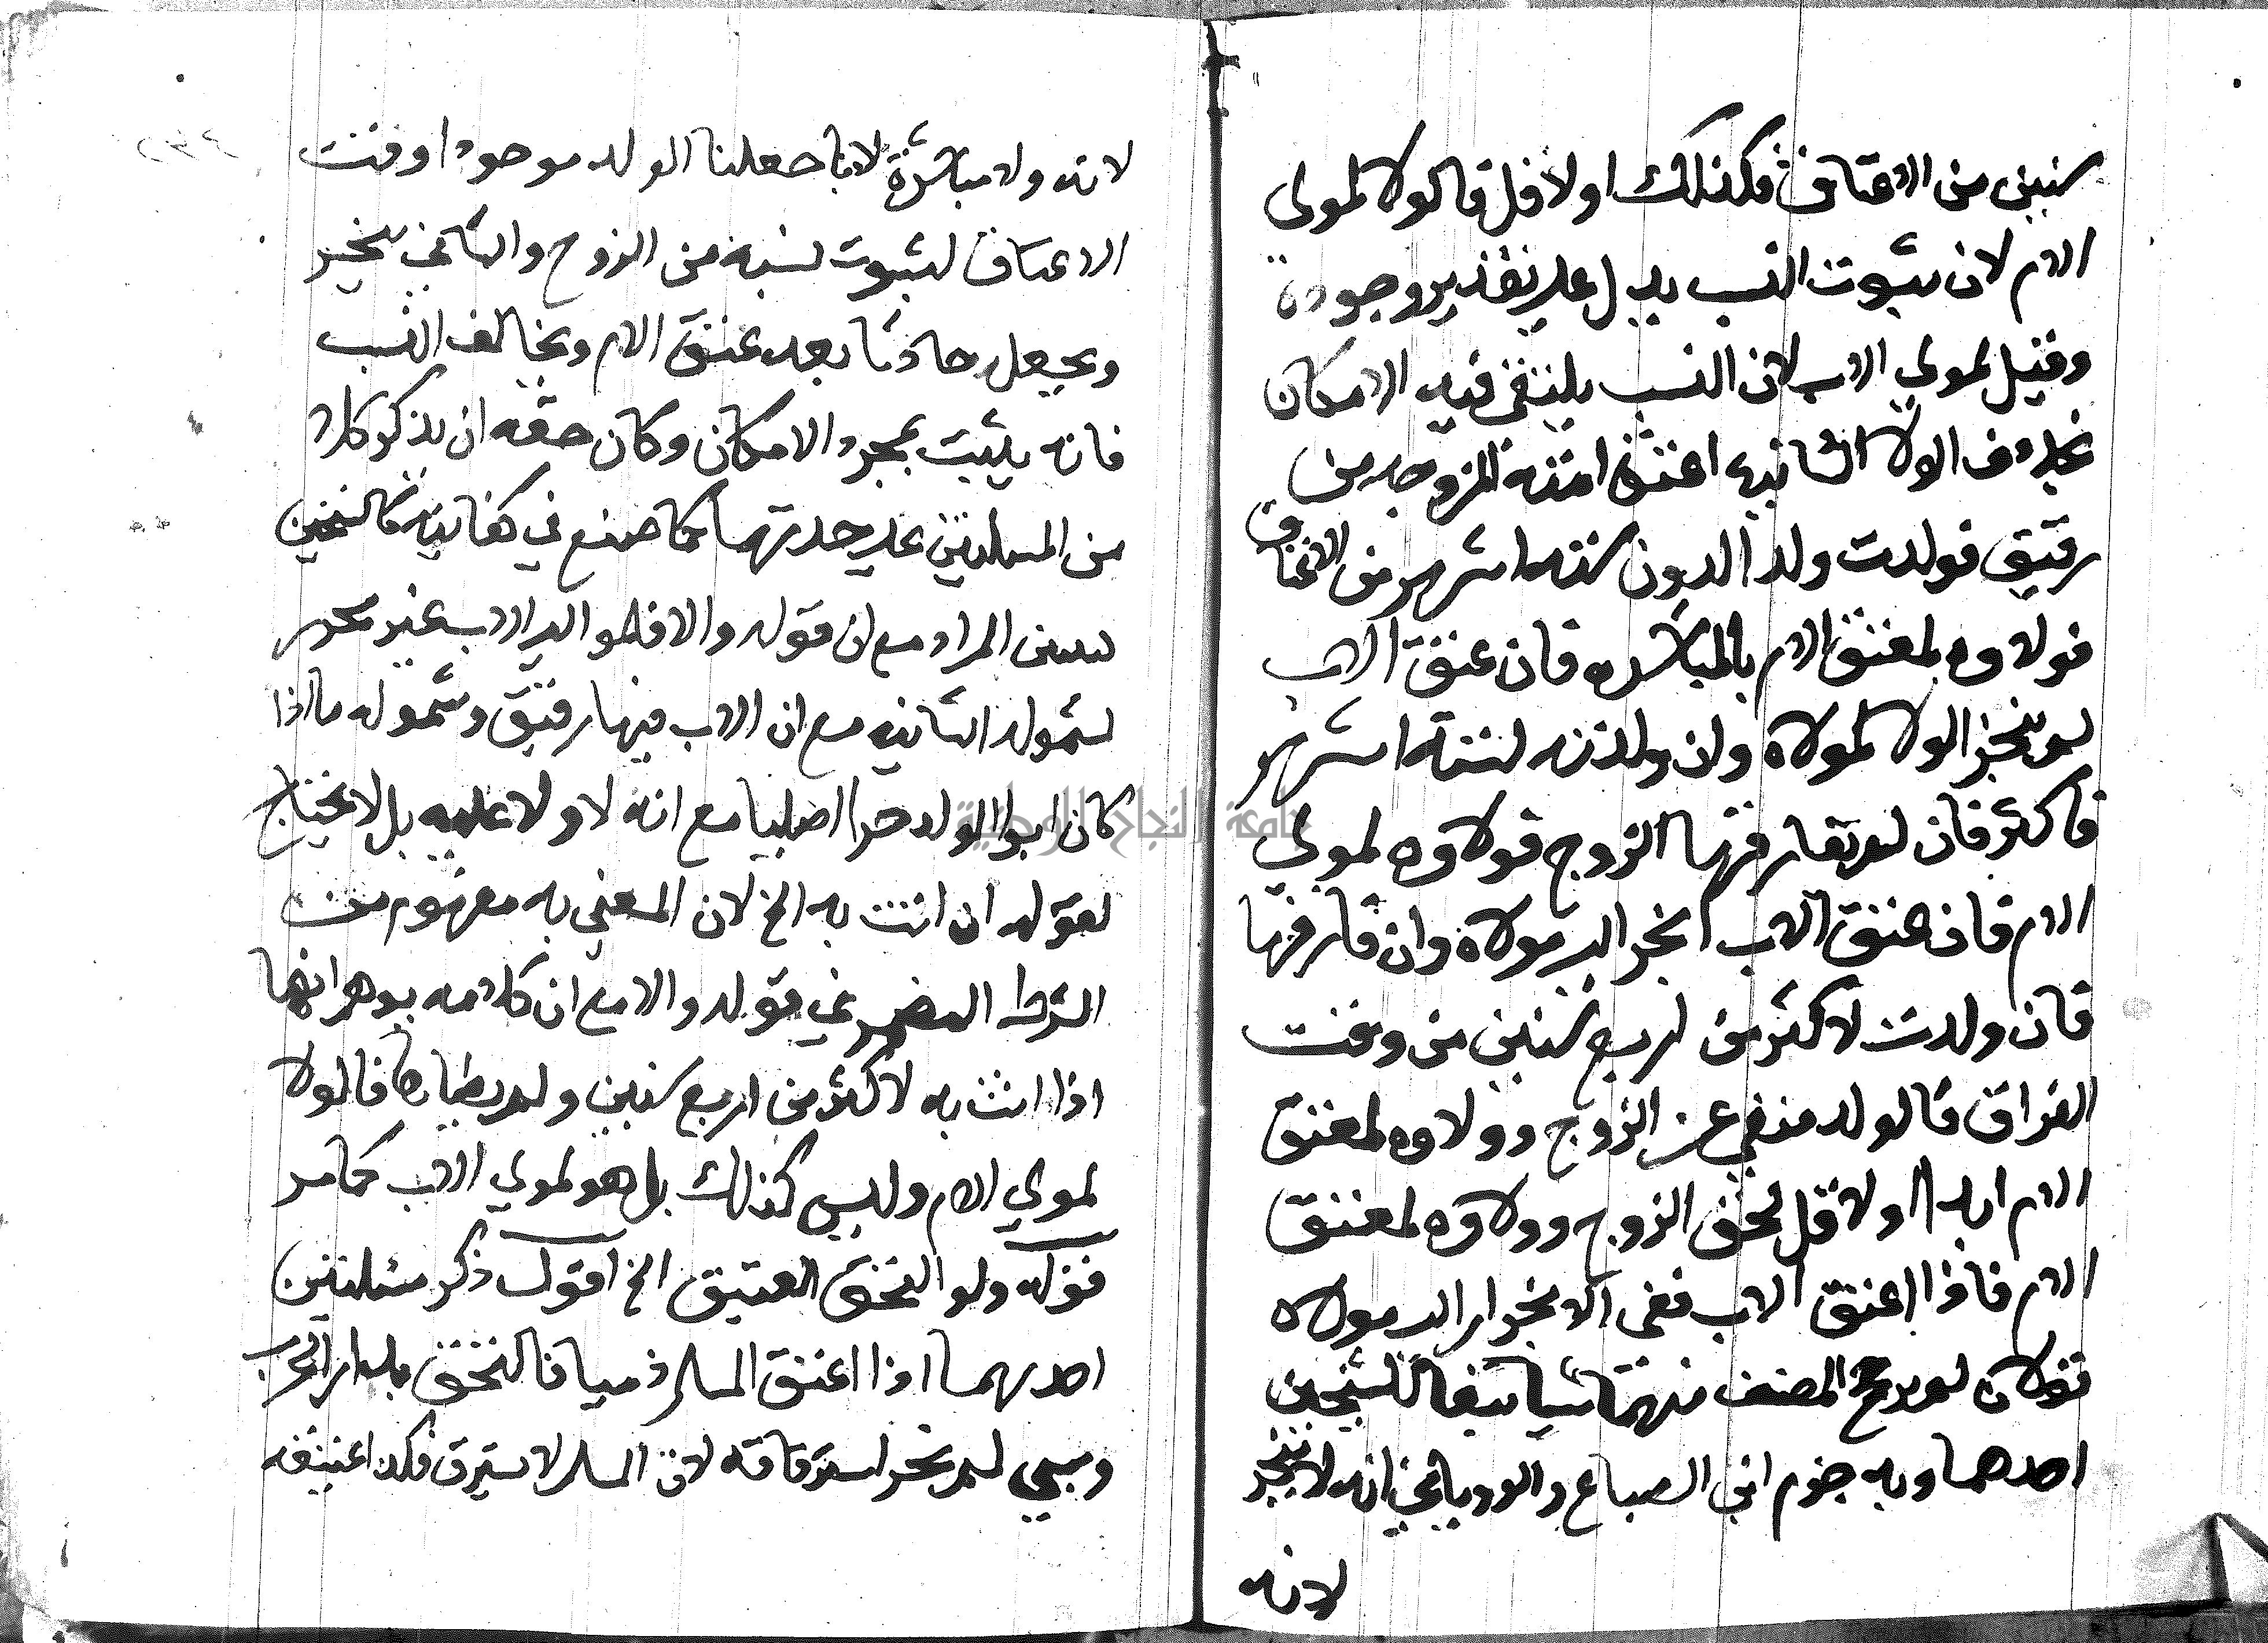 سنين من الاعتاق فكذلك او لاقل فالولا لمولى
الام لان ثبوت النسب يدل على تقدير وجوده
وقيل لمولي الاب لان النسب يكتفي فيه الامكان
بخلاف الولا الثانيه اعتق امته المزوجه من
رقيق فولدت ولدا لدون ستة اشهر من الاعتاق
فولاوه لمعتق الام بالمباشره فان عتق الاب
لم ينجز الولا لمولاه وان ولدته لستة اشهر
فاكثر فان لم يفارقها الزوج فولاوه لمولي
الام فان عتق الاب انجر الى مولاه وان فارقها
فان ولدت لاكثر من اربع سنين من وقت
الفراق فالولد منفي عن الزوج وولاوه لمعتق
الام ابدا او لاقل لحق الزوج وولاوه لمعتق
الام فاذا اعتق الاب ففي الانجرار الى مولاه
قولان لم يرجح المصنف منهما شيا تبعا للشيخين
احدهما وبه جزم ابن الصباغ والرويانى انه لا ينجر
لانه
لانه ولا مباشرة لانا جعلنا الولد موجودا وقت
الاعتاق لثبوت نسبه من الزوج والثاني ينجر
ويجعل حادثا بعد عتق الام ويخالف النسب
فانه يثبت بمجرد الامكان وكان حقه ان يذكر كلا
من المسلتين على حدتهما كما صنع في كفايته كالشيخين
المراد مع ان قوله والا فلموالي الاب غير محرر
لشموله الثانيه مع ان الاب فيها رقيق وشموله ما اذا
كان ابوا الولد حرا اصليا مع انه لا ولا عليه بل لا يحتاج
لقوله ان اتت به الخ لان المعني به مفهوم من
الشرط المضمر في قوله والا مع ان كلامه يوهم انها
اذا اتت به لاكثر من اربع سنين ولم يطاها فالولا
لمولي الام وليس كذلك بل هو لمولي الاب كما مر
قوله ولو التحق العتيق الخ اقول ذكر مسلتين
احدىهما اذا اعتق المسلم ذميا فالتحق بدار الحرب
وسبي لم يجز استرقاقه لان المسلم لا يسترق فكذا عتيقه